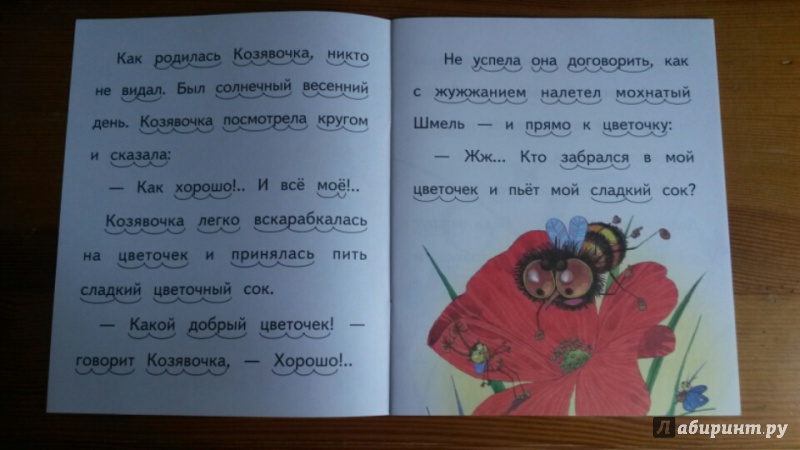 Как родилась Козявочка, никто
не видал. Был солнечный весенний
день. Козявочка посмотрела кругом
и сказала:
— Как хорошо!.. И всё моё!..
Козявочка легко вскарабкалась
на цветочек и принялась пить
сладкий цветочный сок.
— Какой добрый цветочек! —
говорит Козявочка, — Хорошо!..
Не успела она договорить, как
с жужжанием налетел мохнатый
Шмель — и прямо к цветочку:
— Жж... Кто забрался в мой
цветочек и пьёт мой сладкий сок?
Лабиринт.ру